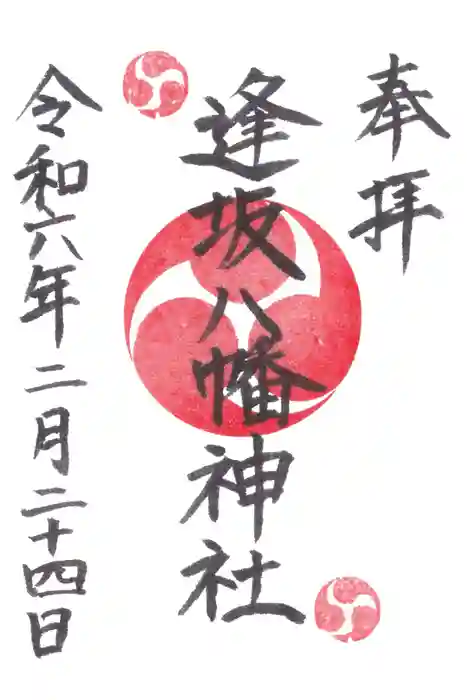 奉拝
逢坂八幡神社
令和六年二月二十四日